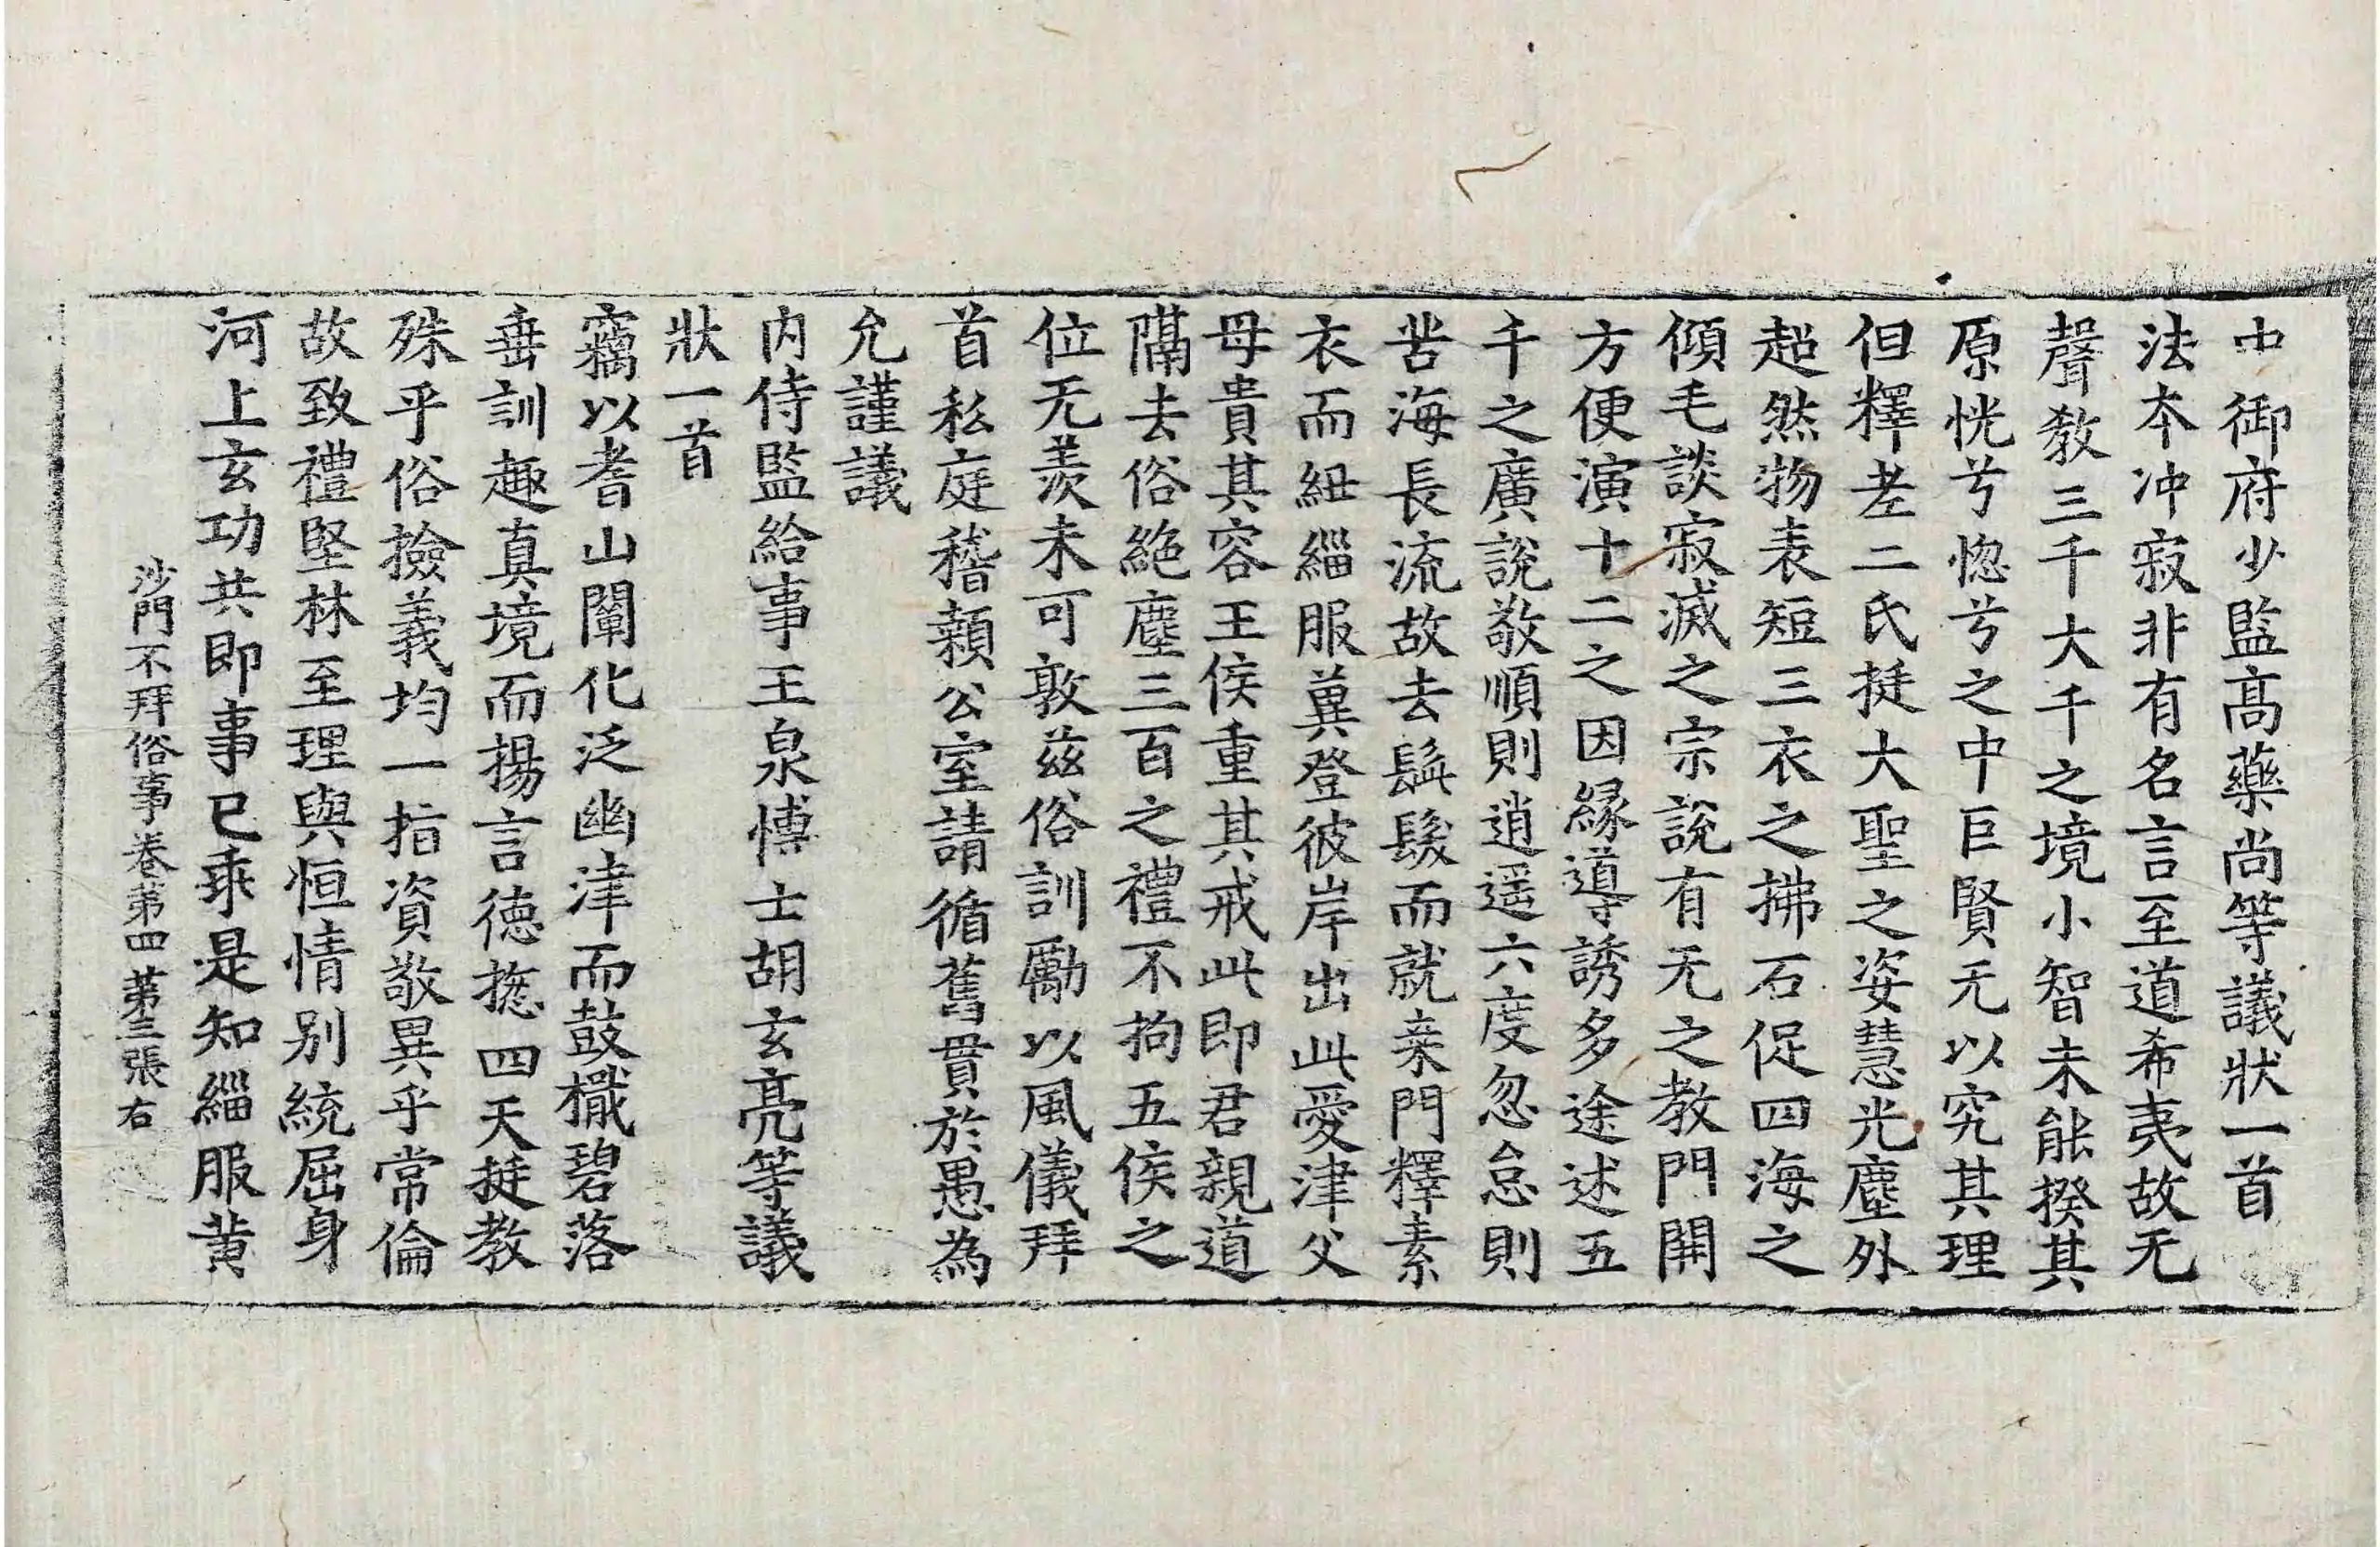 中御府少監高藥尚等議狀一首
法本冲寂非有名言至道希夷故无
聲教三千大千之境小智未能揆其
原恍兮惚兮之中巨賢无以究其理
但釋老二氏挺大聖之姿慧光塵外
超然物表短三衣之拂石促四海之
傾毛談寂滅之宗說有无之教門開
方便演十二之因緣導誘多途述五
千之廣說敬順則逍遥六度忽怠則
苦海長流故去鬚髮而就桒門釋素
衣而紐緇服蓂登彼岸出此愛津父
母貴其容王侯重其戒此即君親道
隔去俗絶塵三百之禮不拘五侯之
位无羡未可敦兹俗訓勵以風儀拜
首私庭稽顙公室請循舊貫於愚為
允謹議
内侍監給事王泉博士胡玄亮等議
狀一首
竊以耆山闡化泛幽津而鼓檝碧落
垂訓趣真境而揚言德揔四天挺教
殊乎俗撿義均一指資敬異乎常倫
故致禮堅林至理與恒情别統屈身
河上玄功共即事已乖是知緇服黄
沙門不拜俗事卷第四 第三張 右